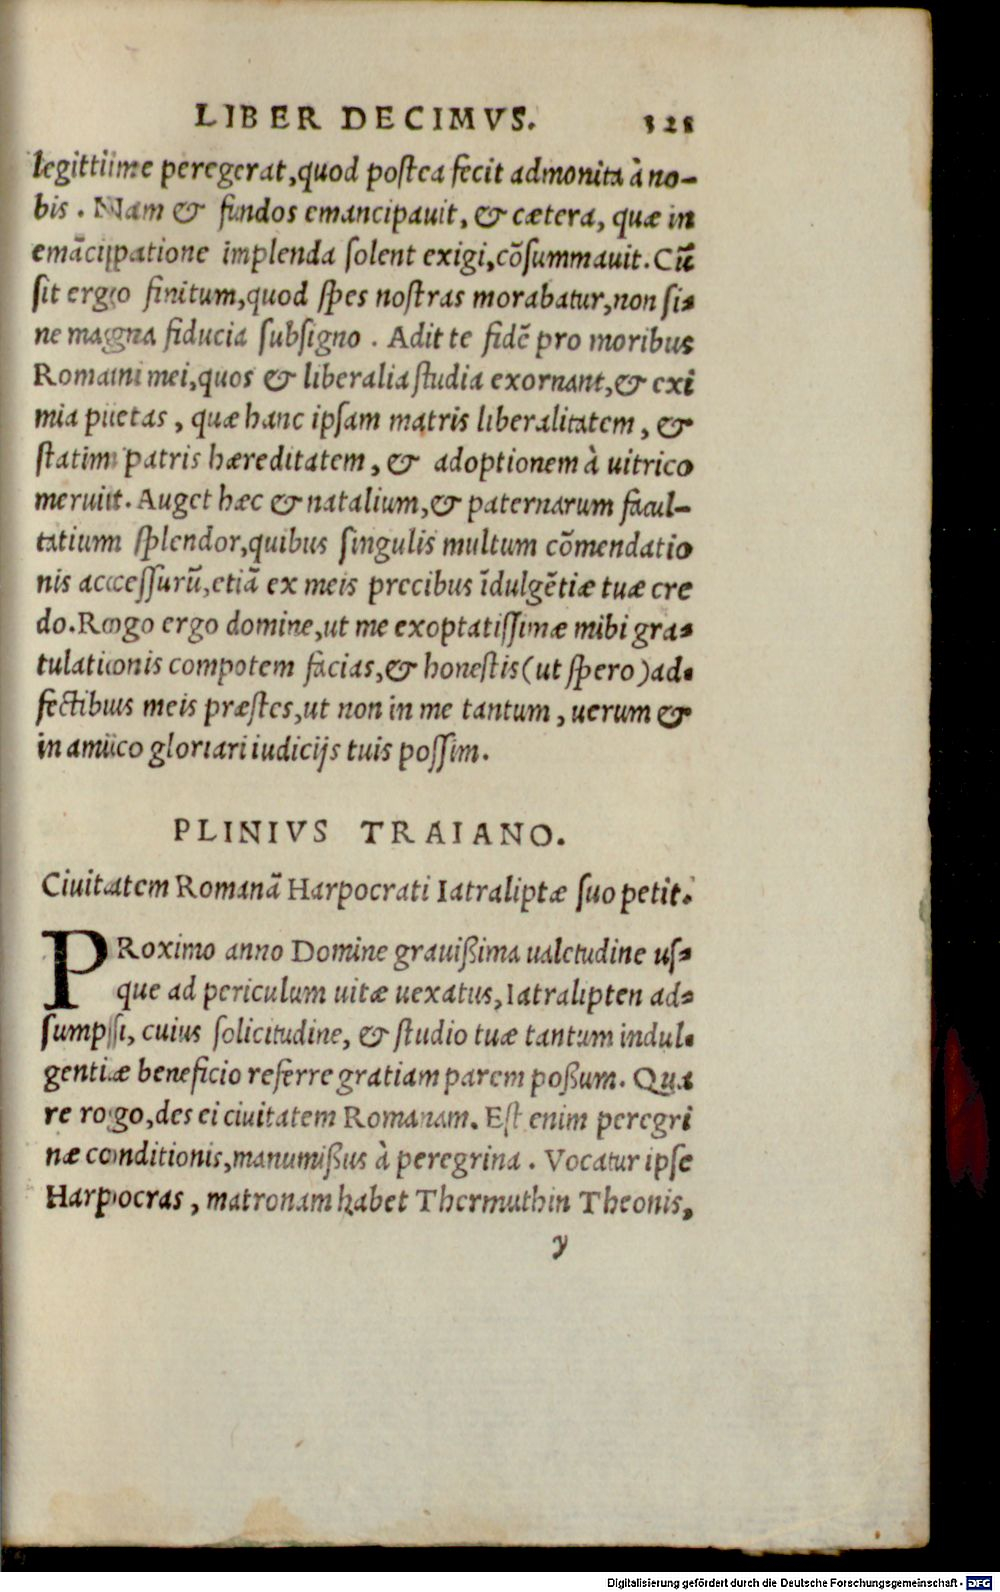 LIBER DECIMVS. 321
legittime peregerat, quod postea fecit admonita à no-
bis. Nam & fundos emancipauit, & cætera, quæ in
emãcipatione implenda solent exigi, cõsummauit. Cũ
sit ergo finitum, quod spes nostras morabatur, non si-
ne magna fiducia subsigno. Adit te fidẽ pro moribus
Romani mei, quos & liberalia studia exornant, & exi
mia pietas, quæ hanc ipsam matris liberalitatem, &
statim patris hæreditatem, & adoptionem à uitrico
meruit. Auget hæc & natalium, & paternarum facul-
tatium splendor, quibus singulis multum cõmendatio
nis accessurũ, etiã ex meis precibus ĩdulgẽtiæ tuæ cre
do. Rogo ergo domine, ut me exoptatissimæ mihi gra-
tulationis compotem facias, & honestis (ut spero) ad-
fectibus meis præstes, ut non in me tantum, uerum &
in amico gloriari iudicijs tuis possim.
PLINIVS TRAIANO.
Ciuitatem Romanã Harpocrati Iatraliptæ suo petit.
PRoximo anno Domine grauißima ualetudine us-
que ad periculum uitæ uexatus, Iatralipten ad-
sumpsi, cuius solicitudine, & studio tuæ tantum indul-
gentiæ beneficio referre gratiam parem poßum. Qua
re rogo, des ei ciuitatem Romanam. Est enim peregri
næ conditionis, manumißus à peregrina. Vocatur ipse
Harpocras, matronam habet Thermuthin Theonis,
y
Digitalisierung gefördert durch die Deutsche Forschungsgemeinschaft - DFG